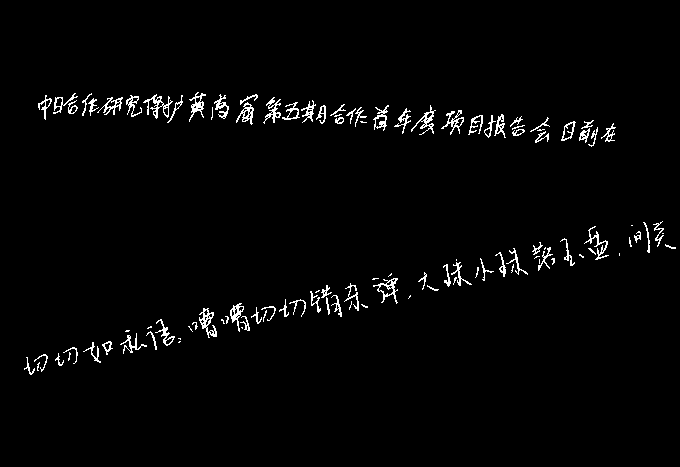 中日合作研究保护莫高窟第五期合作首年度项目报告会日前在
切切如私语,嘈嘈切切错杂弹,大珠小珠落玉盘,间关